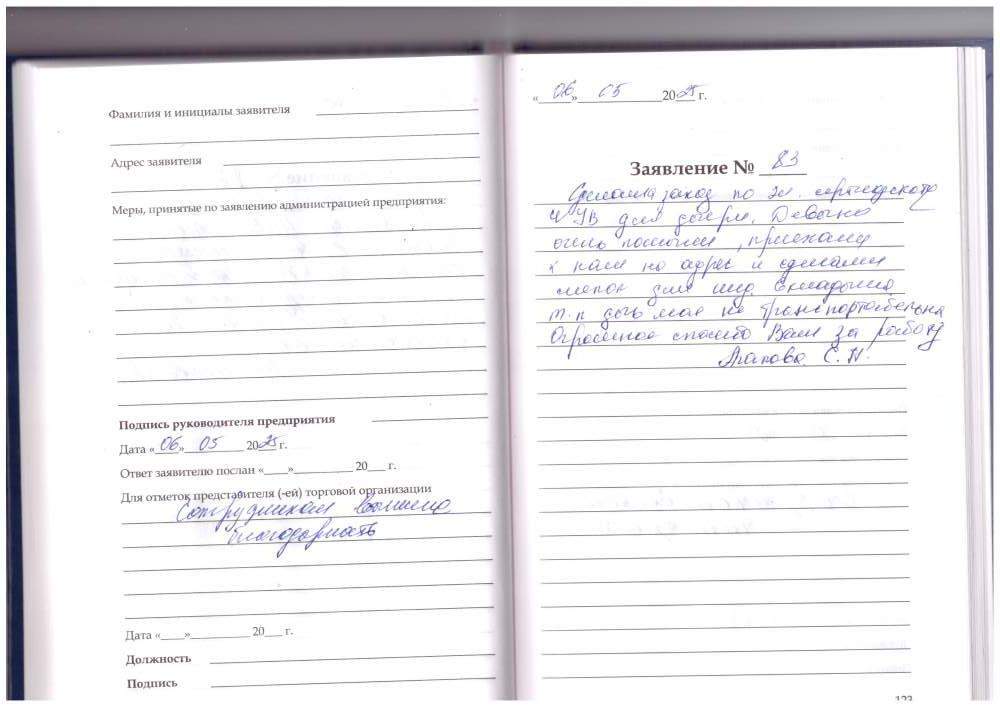 Фамилия и инициалы заявителя
Адрес заявителя
Меры, принятые по заявлению администрацией предприятия:
Подпись руководителя предприятия
Дата «06» 05 2025 г.
Ответ заявителю послан «____»__________ 20___ г.
Для отметок представителя (-ей) торговой организации
Сотрудникам вынесена
благодарность
Дата «____»__________ 20___ г.
Должность
Подпись
«06» 05 2025 г.
Заявление № 83
Сделала заказ по эл.
для дочери. Девочки
очень помогли, приехали
к нам на адрес и сделали
слепок для инд. вкладыша
т.п дочь моя не транспортабельна
Огромное спасибо Вам за работу
С. Н.
123